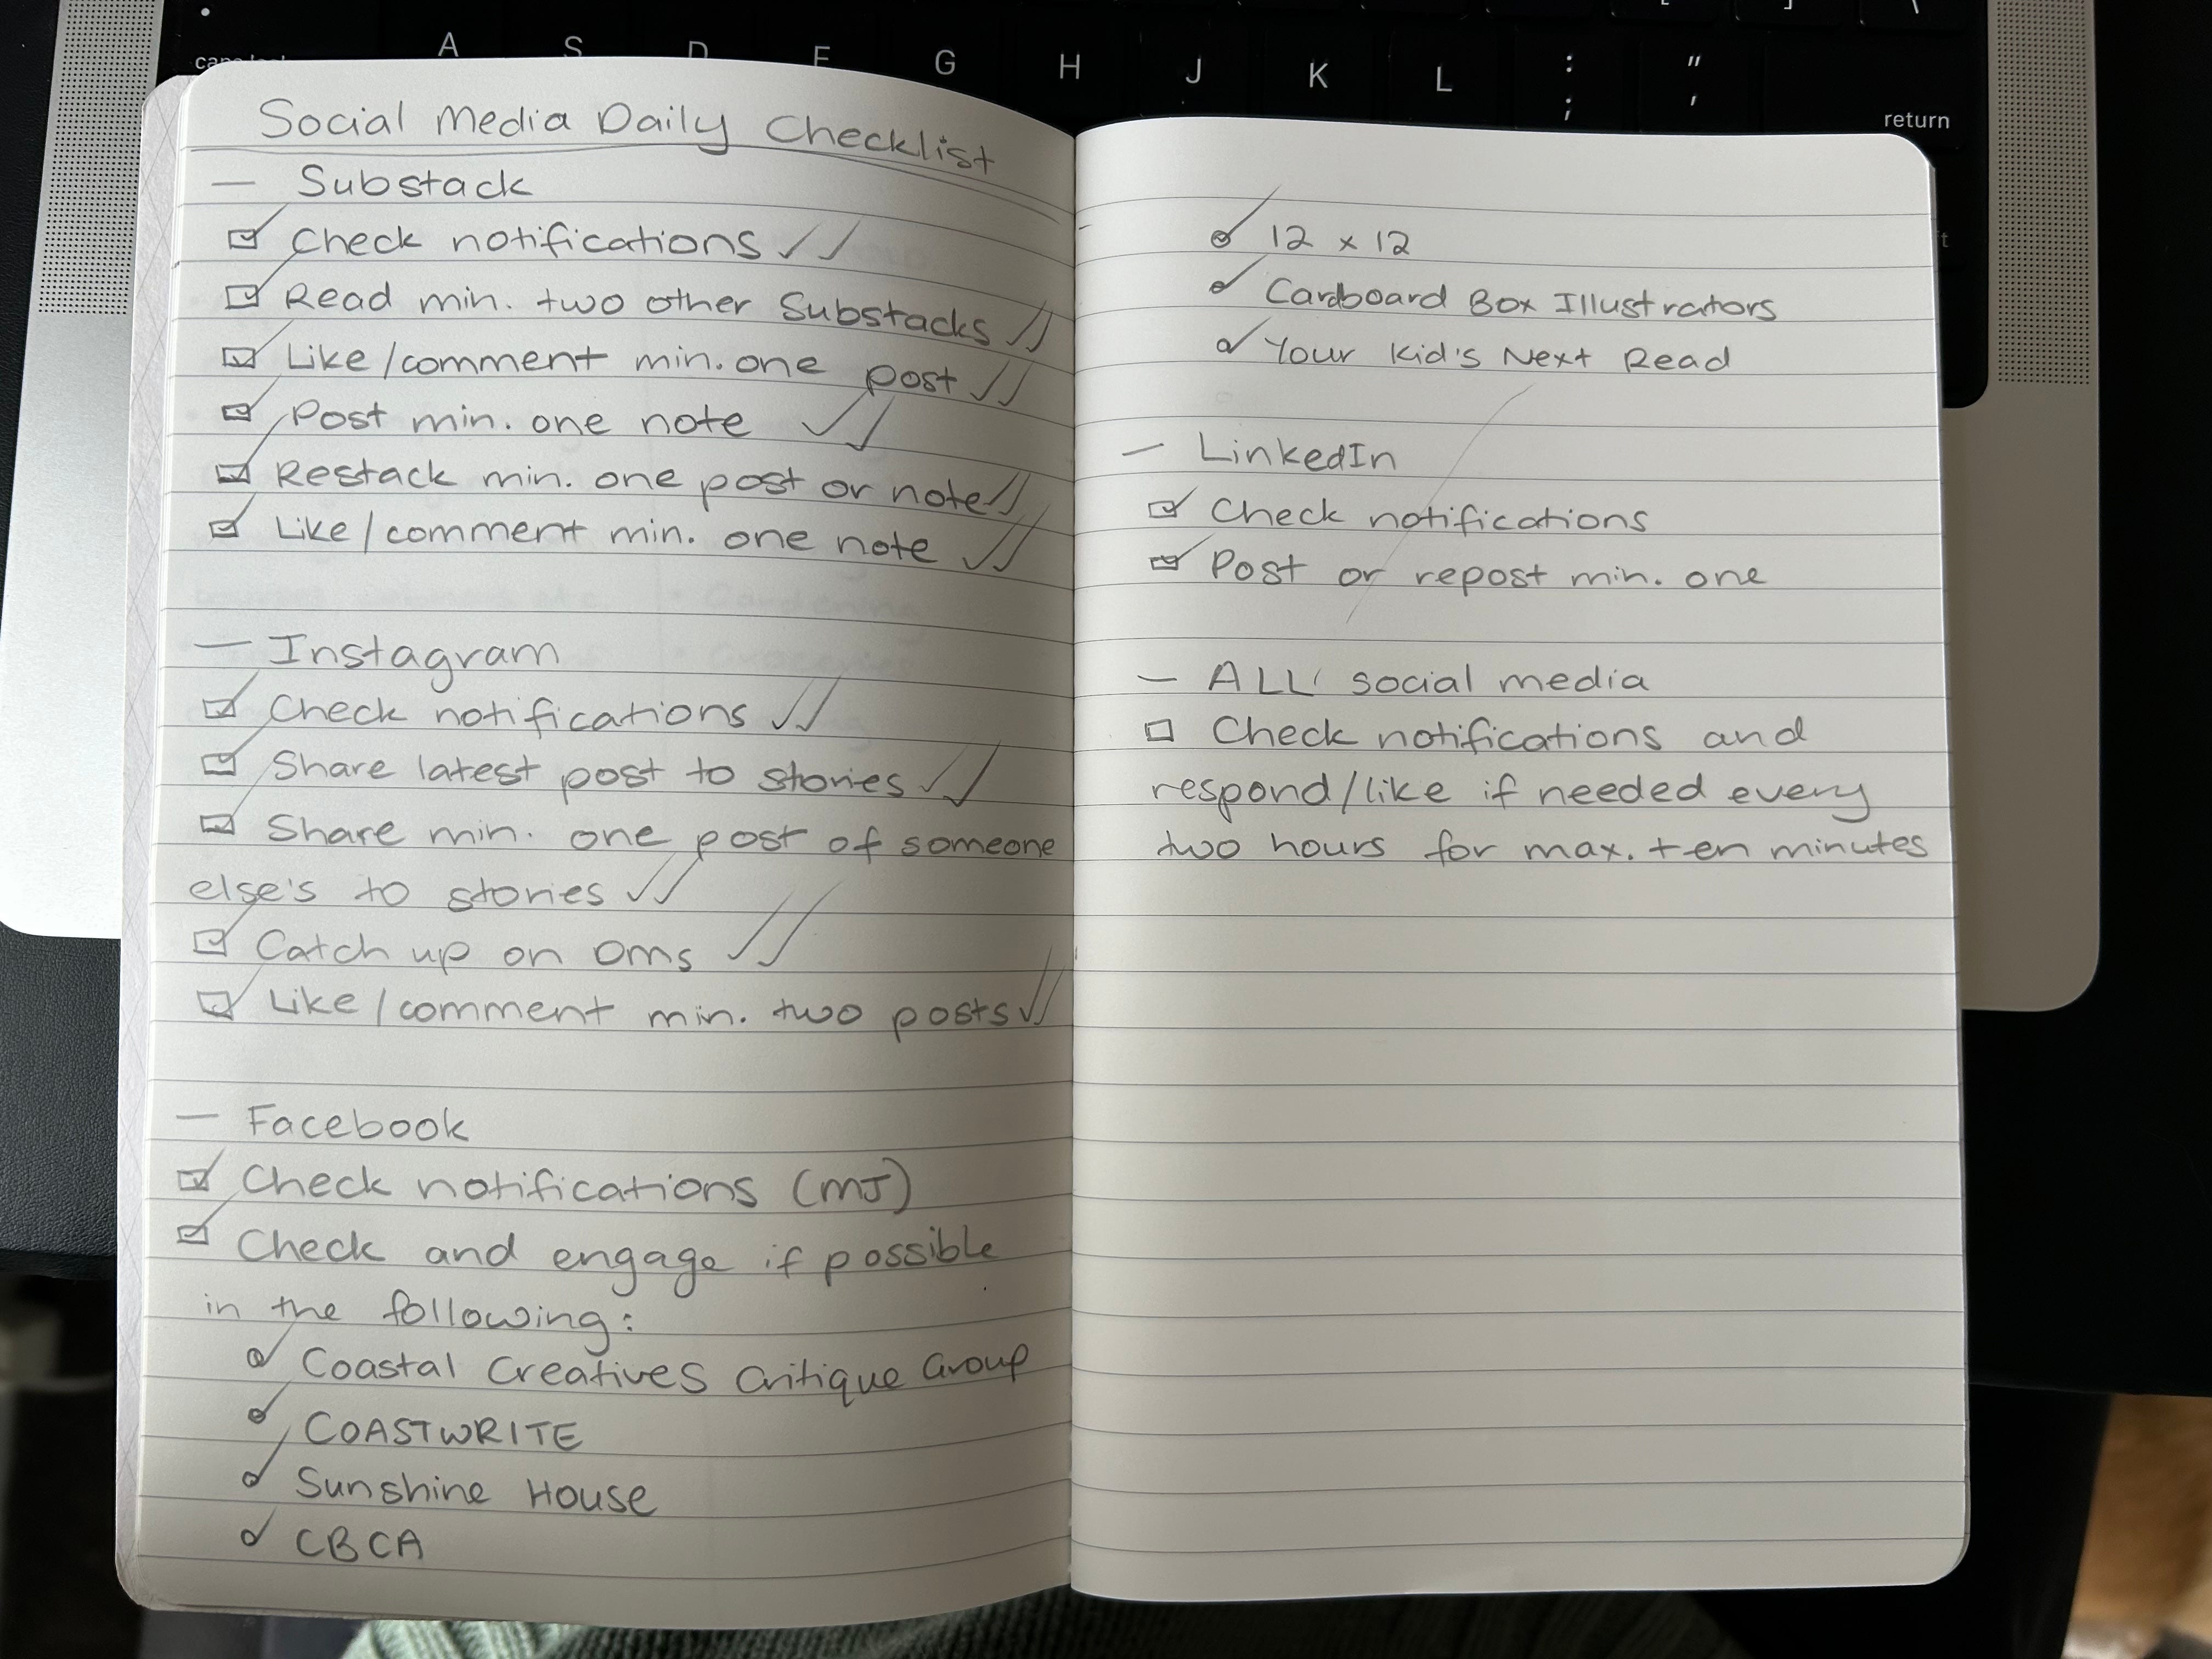 A S D F G H J K L : ; " '
return
Social Media Daily Checklist
— Substack
☑ Check notifications ✓✓
☑ Read min. two other Substacks ✓✓
☑ Like/comment min. one post ✓✓
☑ Post min. one note ✓✓
☑ Restack min. one post or note ✓✓
☑ Like/comment min. one note ✓✓
— Instagram
☑ Check notifications ✓✓
☑ Share latest post to stories ✓✓
☑ Share min. one post of someone
else's to stories ✓✓
☑ Catch up on DMs ✓✓
☑ Like/comment min. two posts ✓✓
— Facebook
☑ Check notifications (MJ)
☑ Check and engage if possible
in the following:
✓ Coastal Creatives Critique Group
✓ COASTWRITE
✓ Sunshine House
✓ CBCA
✓ 12 x 12
✓ Cardboard Box Illustrators
✓ Your Kid's Next Read
— LinkedIn
☑ Check notifications
☑ Post or repost min. one
— ALL social media
☐ Check notifications and
respond/like if needed every
two hours for max. ten minutes